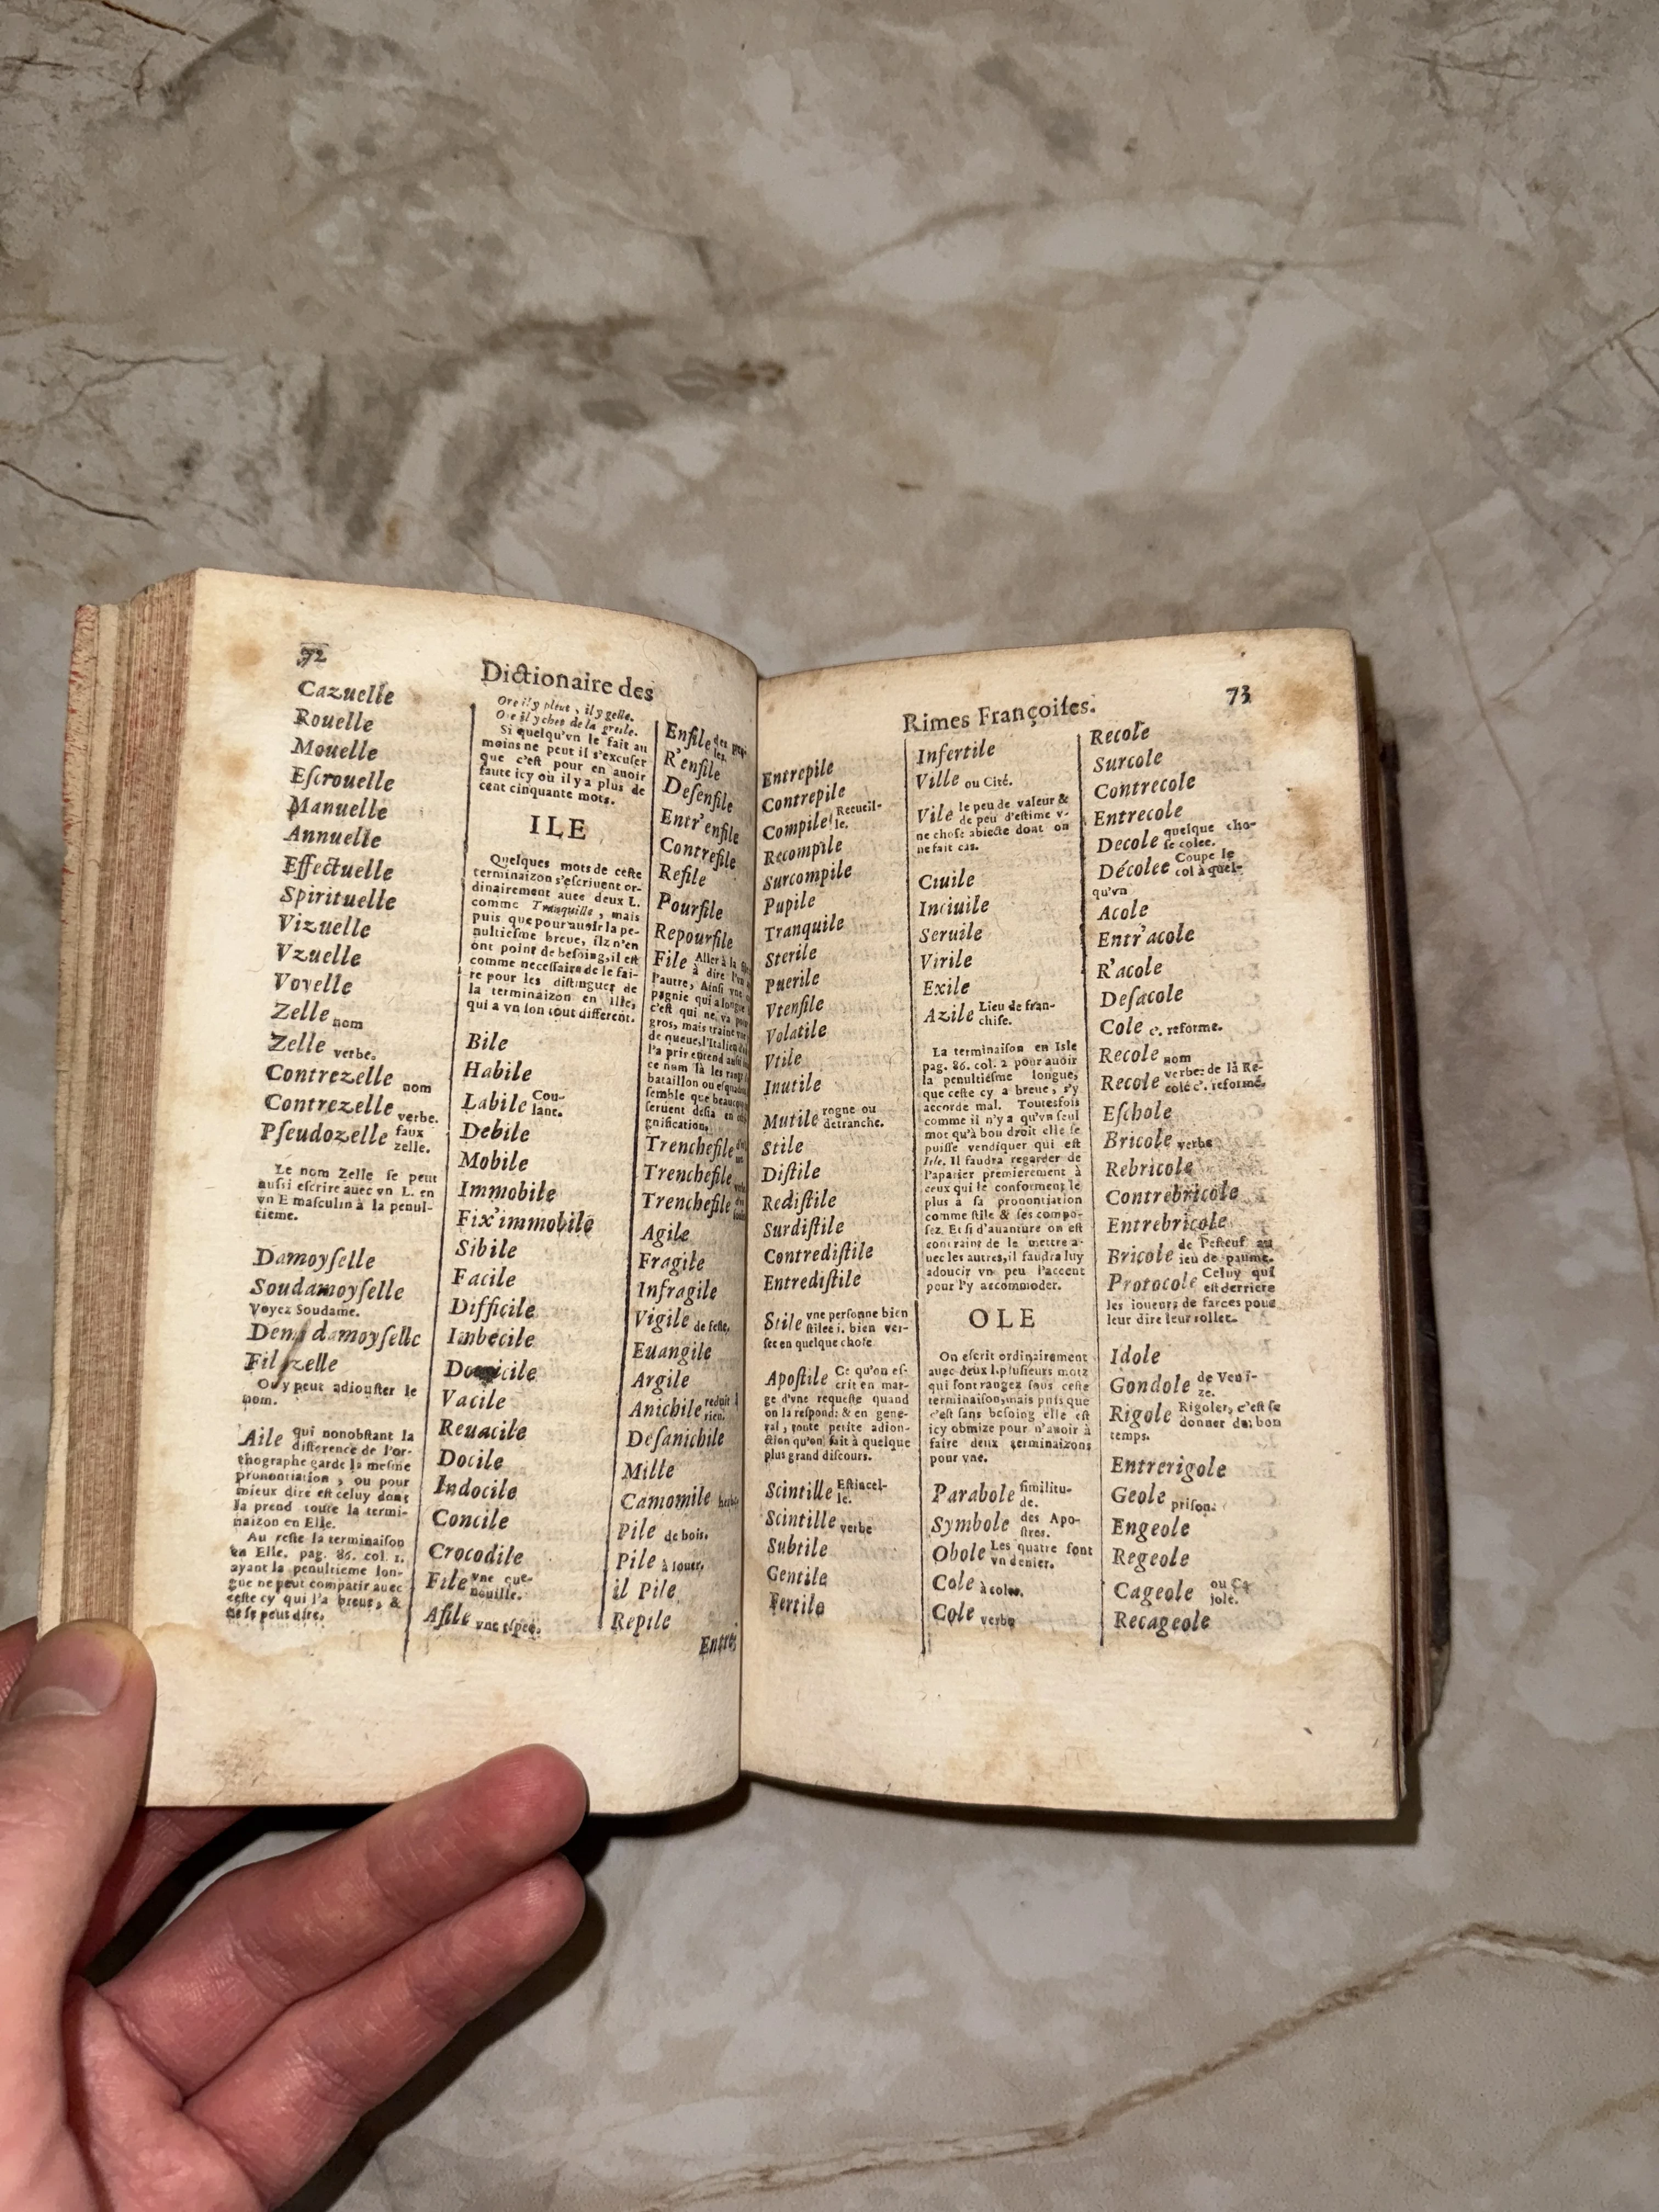 72
Dictionaire des
Cazuelle
Rouelle
Mouelle
Eſcrouelle
Manuelle
Annuelle
Effectuelle
Spirituelle
Vizuelle
Vzuelle
Voyelle
Zelle nom
Zelle verbe.
Contrezelle nom
Contrezelle verbe.
Pſeudozelle faux
zelle.
Le nom Zelle ſe peut
auſsi eſcrire auec vn L. en
vn E maſculin à la penul-
tieme.
Damoyſelle
Soudamoyſelle
Voyez Soudame.
damoyſelle
On y peut adiouſter le
nom.
Aile qui nonobſtant la
difference de l'or-
thographe garde la meſme
pronontiation, ou pour
mieux dire eſt celuy dont
la prend toute la termi-
naizon en Elle.
Au reſte la terminaiſon
en Elle. pag. 86. col. 1.
ayant la penultieme lon-
gue ne peut compatir auec
ceſte cy qui l'a breue, &
ne ſe peut dire.
Ore il y pleut, il y gelle.
Ore il y chet de la greſle.
Si quelqu'vn le fait au
moins ne peut il s'excuſer
que c'eſt pour en auoir
faute icy où il y a plus de
cent cinquante mots.
ILE
Quelques mots de ceſte
terminaizon s'eſcriuent or-
dinairement auec deux L.
comme Tranquille, mais
puis que pour auoir la pe-
nultieſme breue, ilz n'en
ont point de beſoing, il eſt
comme neceſſaire de le fai-
re pour les diſtinguer de
la terminaizon en ille,
qui a vn ſon tout different.
Bile
Habile
Labile Cou-
lant.
Debile
Mobile
Immobile
Fix'immobile
Sibile
Facile
Difficile
Imbecile
Domicile
Vacile
Reuacile
Docile
Indocile
Concile
Crocodile
File vne que-
nouille.
Afile vne eſpee.
Enfile
R'enfile
Deſenfile
Entr'enfile
Contrefile
Refile
Pourfile
Repourfile
File Aller à la
à dire l'vn
l'autre, Ainſi vne
pagnie qui a longue
c'eſt qui ne va
gros, mais traine
de queue, l'Italien
l'a prix
ce nom là les
bataillon ou
ſemble que
ſeruent deſia en
gnification.
Trenchefile
Trenchefile
Trenchefile
Agile
Fragile
Infragile
Vigile de feſte.
Euangile
Argile
Anichile reduit à
rien.
Deſanichile
Mille
Camomile herbe
Pile de bois.
Pile à iouer.
il Pile
Repile
Entre
Rimes Françoiſes.
73
Entrepile
Contrepile
Compile Recueil-
le.
Recompile
Surcompile
Pupile
Tranquile
Sterile
Puerile
Vtenſile
Volatile
Vtile
Inutile
Mutile rogne ou
detranche.
Stile
Diſtile
Rediſtile
Surdiſtile
Contrediſtile
Entrediſtile
Stile vne perſonne bien
ſtilee i. bien ver-
ſee en quelque choſe
Apoſtile Ce qu'on eſ-
crit en mar-
ge d'vne requeſte quand
on la reſpond: & en gene-
ral, toute petite adion-
ction qu'on fait à quelque
plus grand diſcours.
Scintille Eſtincel-
le.
Scintille verbe
Subtile
Gentile
Fertile
Infertile
Ville ou Cité.
Vile le peu de valeur &
de peu d'eſtime v-
ne choſe abiecte dont on
ne fait cas.
Ciuile
Inciuile
Seruile
Virile
Exile
Azile Lieu de fran-
chiſe.
La terminaiſon en Isle
pag. 86. col. 2 pour auoir
la penultieſme longue,
que ceſte cy a breue, s'y
accorde mal. Toutesfois
comme il n'y a qu'vn ſeul
mot qu'à bon droit elle ſe
puiſſe vendiquer qui eſt
Isle. Il faudra regarder de
l'aparier premierement à
ceux qui ſe conforment le
plus à ſa prononciation
comme ſtille & ſes compo-
ſez. Et ſi d'auanture on eſt
contraint de le mettre a-
uec les autres, il faudra luy
adoucir vn peu l'accent
pour l'y accommoder.
OLE
On eſcrit ordinairement
auec deux l. pluſieurs motz
qui ſont rangez ſous ceſte
terminaiſon, mais puis que
c'eſt ſans beſoing elle eſt
icy obmize pour n'auoir à
faire deux terminaizons
pour vne.
Parabole ſimilitu-
de.
Symbole des Apo-
ſtres.
Obole Les quatre ſont
vn denier.
Cole à coler.
Cole verbe
Recole
Surcole
Contrecole
Entrecole
Decole quelque cho-
ſe colee.
Décolee Coupe le
col à quel-
qu'vn
Acole
Entr'acole
R'acole
Deſacole
Cole c. reforme.
Recole nom
Recole verbe: de là Re-
colé c. reformé.
Eſchole
Bricole verbe
Rebricole
Contrebricole
Entrebricole
Bricole de l'eſteuf au
ieu de paume.
Protocole Celuy qui
eſt derriere
les ioueurs de farces pour
leur dire leur rollet.
Idole
Gondole de Veni-
ze.
Rigole Rigoler, c'eſt ſe
donner du bon
temps.
Entrerigole
Geole priſon.
Engeole
Regeole
Cageole ou Ca
jole.
Recageole